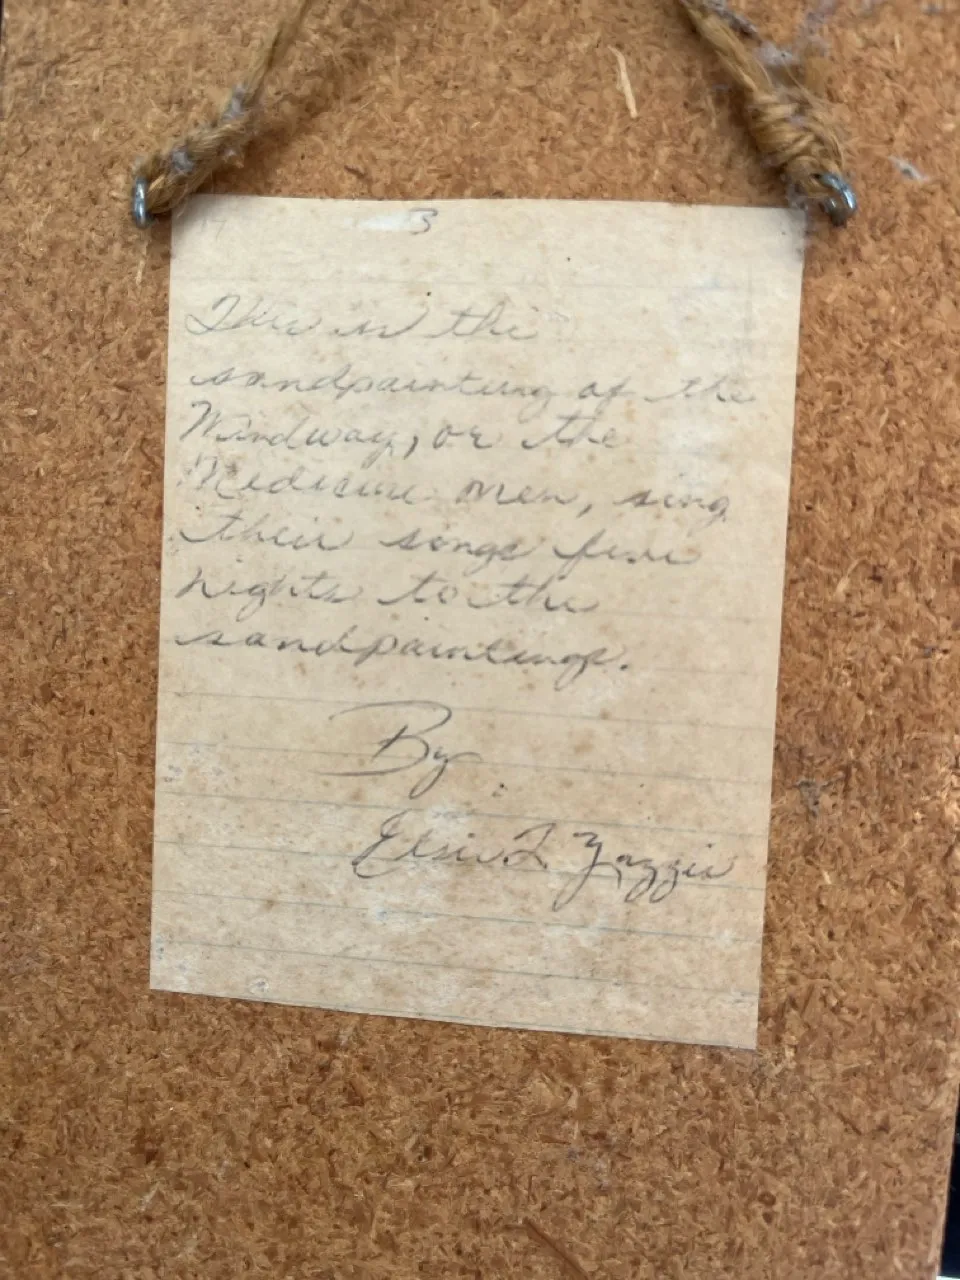 3
This is the
sandpainting of the
Windway, or the
Medicine men, sing
their songs five
nights to the
sandpaintings.
By
Elsie L Yazzie